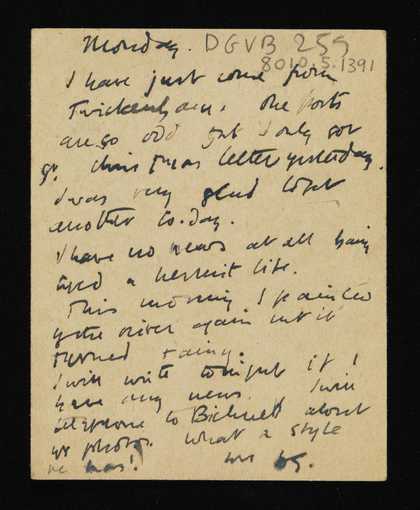 Monday. DGVB 259
8010.5.1391
I have just come from
Twickenham. The posts
are so odd but I only got
yr. Christmas letter yesterday.
I was very glad to get
another to-day.
I have no news at all having
lived a hermit life.
This morning I painted
by the river again but it
turned rainy.
I will write tonight if I
have any news. I will
telephone to Bicknell about
yr photos. What a style
he has!